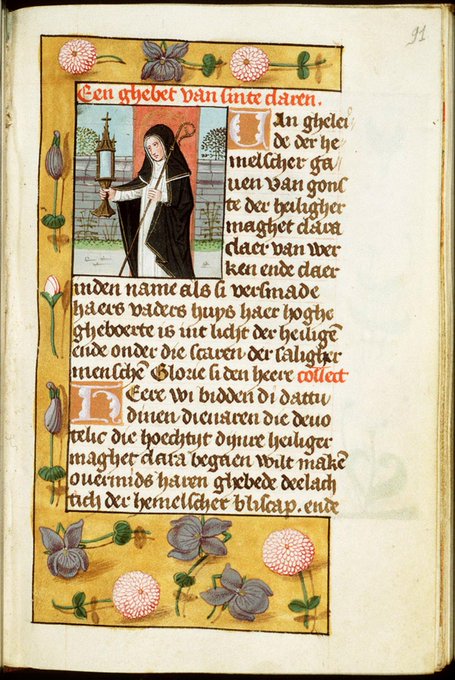 91
Een ghebet van sinte claren.
VAn ghelei
de der he
melscher ga
uen van gons
te der heiligher
maghet clara
claer van wer
ken ende claer
inden name als si versmade
haers vaders huys haer hoghe
gheboerte is uut licht der heiligē
ende onder die scaren der saligher
menschē Glorie si den heere collect
HEere wi bidden di dattu
dinen dienaren die deuo
telic die hoechtijt dijnre heiliger
maghet clara begaen wilt makē
ouermids haren ghebede deelach
tich der hemelscher bliscap. ende